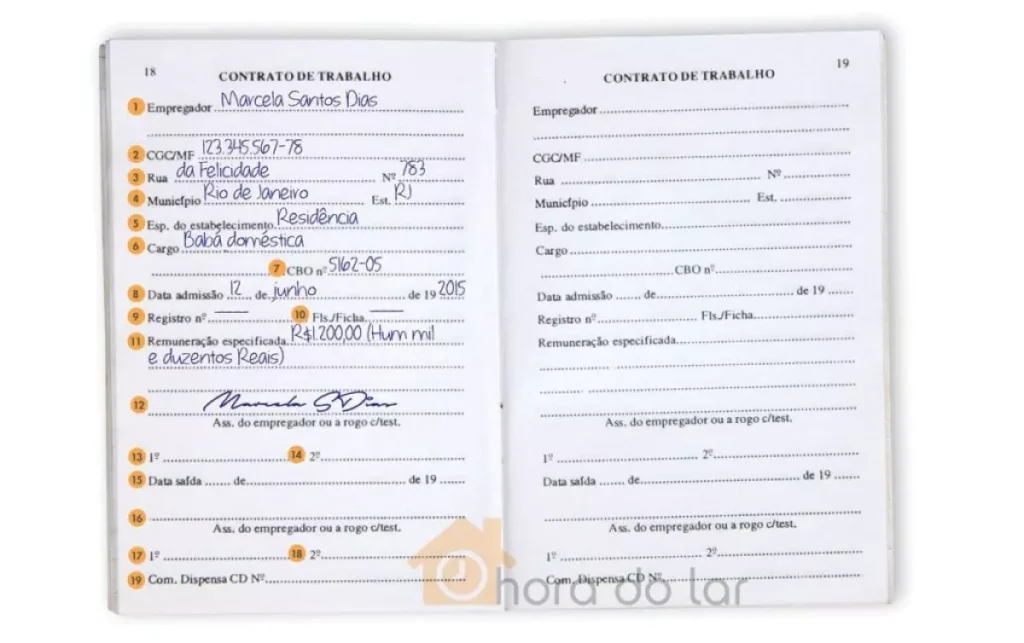 18
CONTRATO DE TRABALHO
1 Empregador Marcela Santos Dias
2 CGC/MF 123.345.567-78
3 Rua da Felicidade Nº 783
4 Município Rio de Janeiro Est. RJ
5 Esp. do estabelecimento Residência
6 Cargo Babá doméstica
7 CBO nº 5162-05
8 Data admissão 12 de junho de 19 2015
9 Registro nº 10 Fls./Ficha
11 Remuneração especificada R$1.200,00 (Hum mil
e duzentos Reais)
12 Marcela S Dias
Ass. do empregador ou a rogo c/test.
13 1º 14 2º
15 Data saída de de 19
16
Ass. do empregador ou a rogo c/test.
17 1º 18 2º
19 Com. Dispensa CD Nº
19
CONTRATO DE TRABALHO
Empregador
CGC/MF
Rua Nº
Município Est.
Esp. do estabelecimento
Cargo
CBO nº
Data admissão de de 19
Registro nº Fls./Ficha
Remuneração especificada
Ass. do empregador ou a rogo c/test.
1º 2º
Data saída de de 19
Ass. do empregador ou a rogo c/test.
1º 2º
Com. Dispensa CD Nº
hora do lar